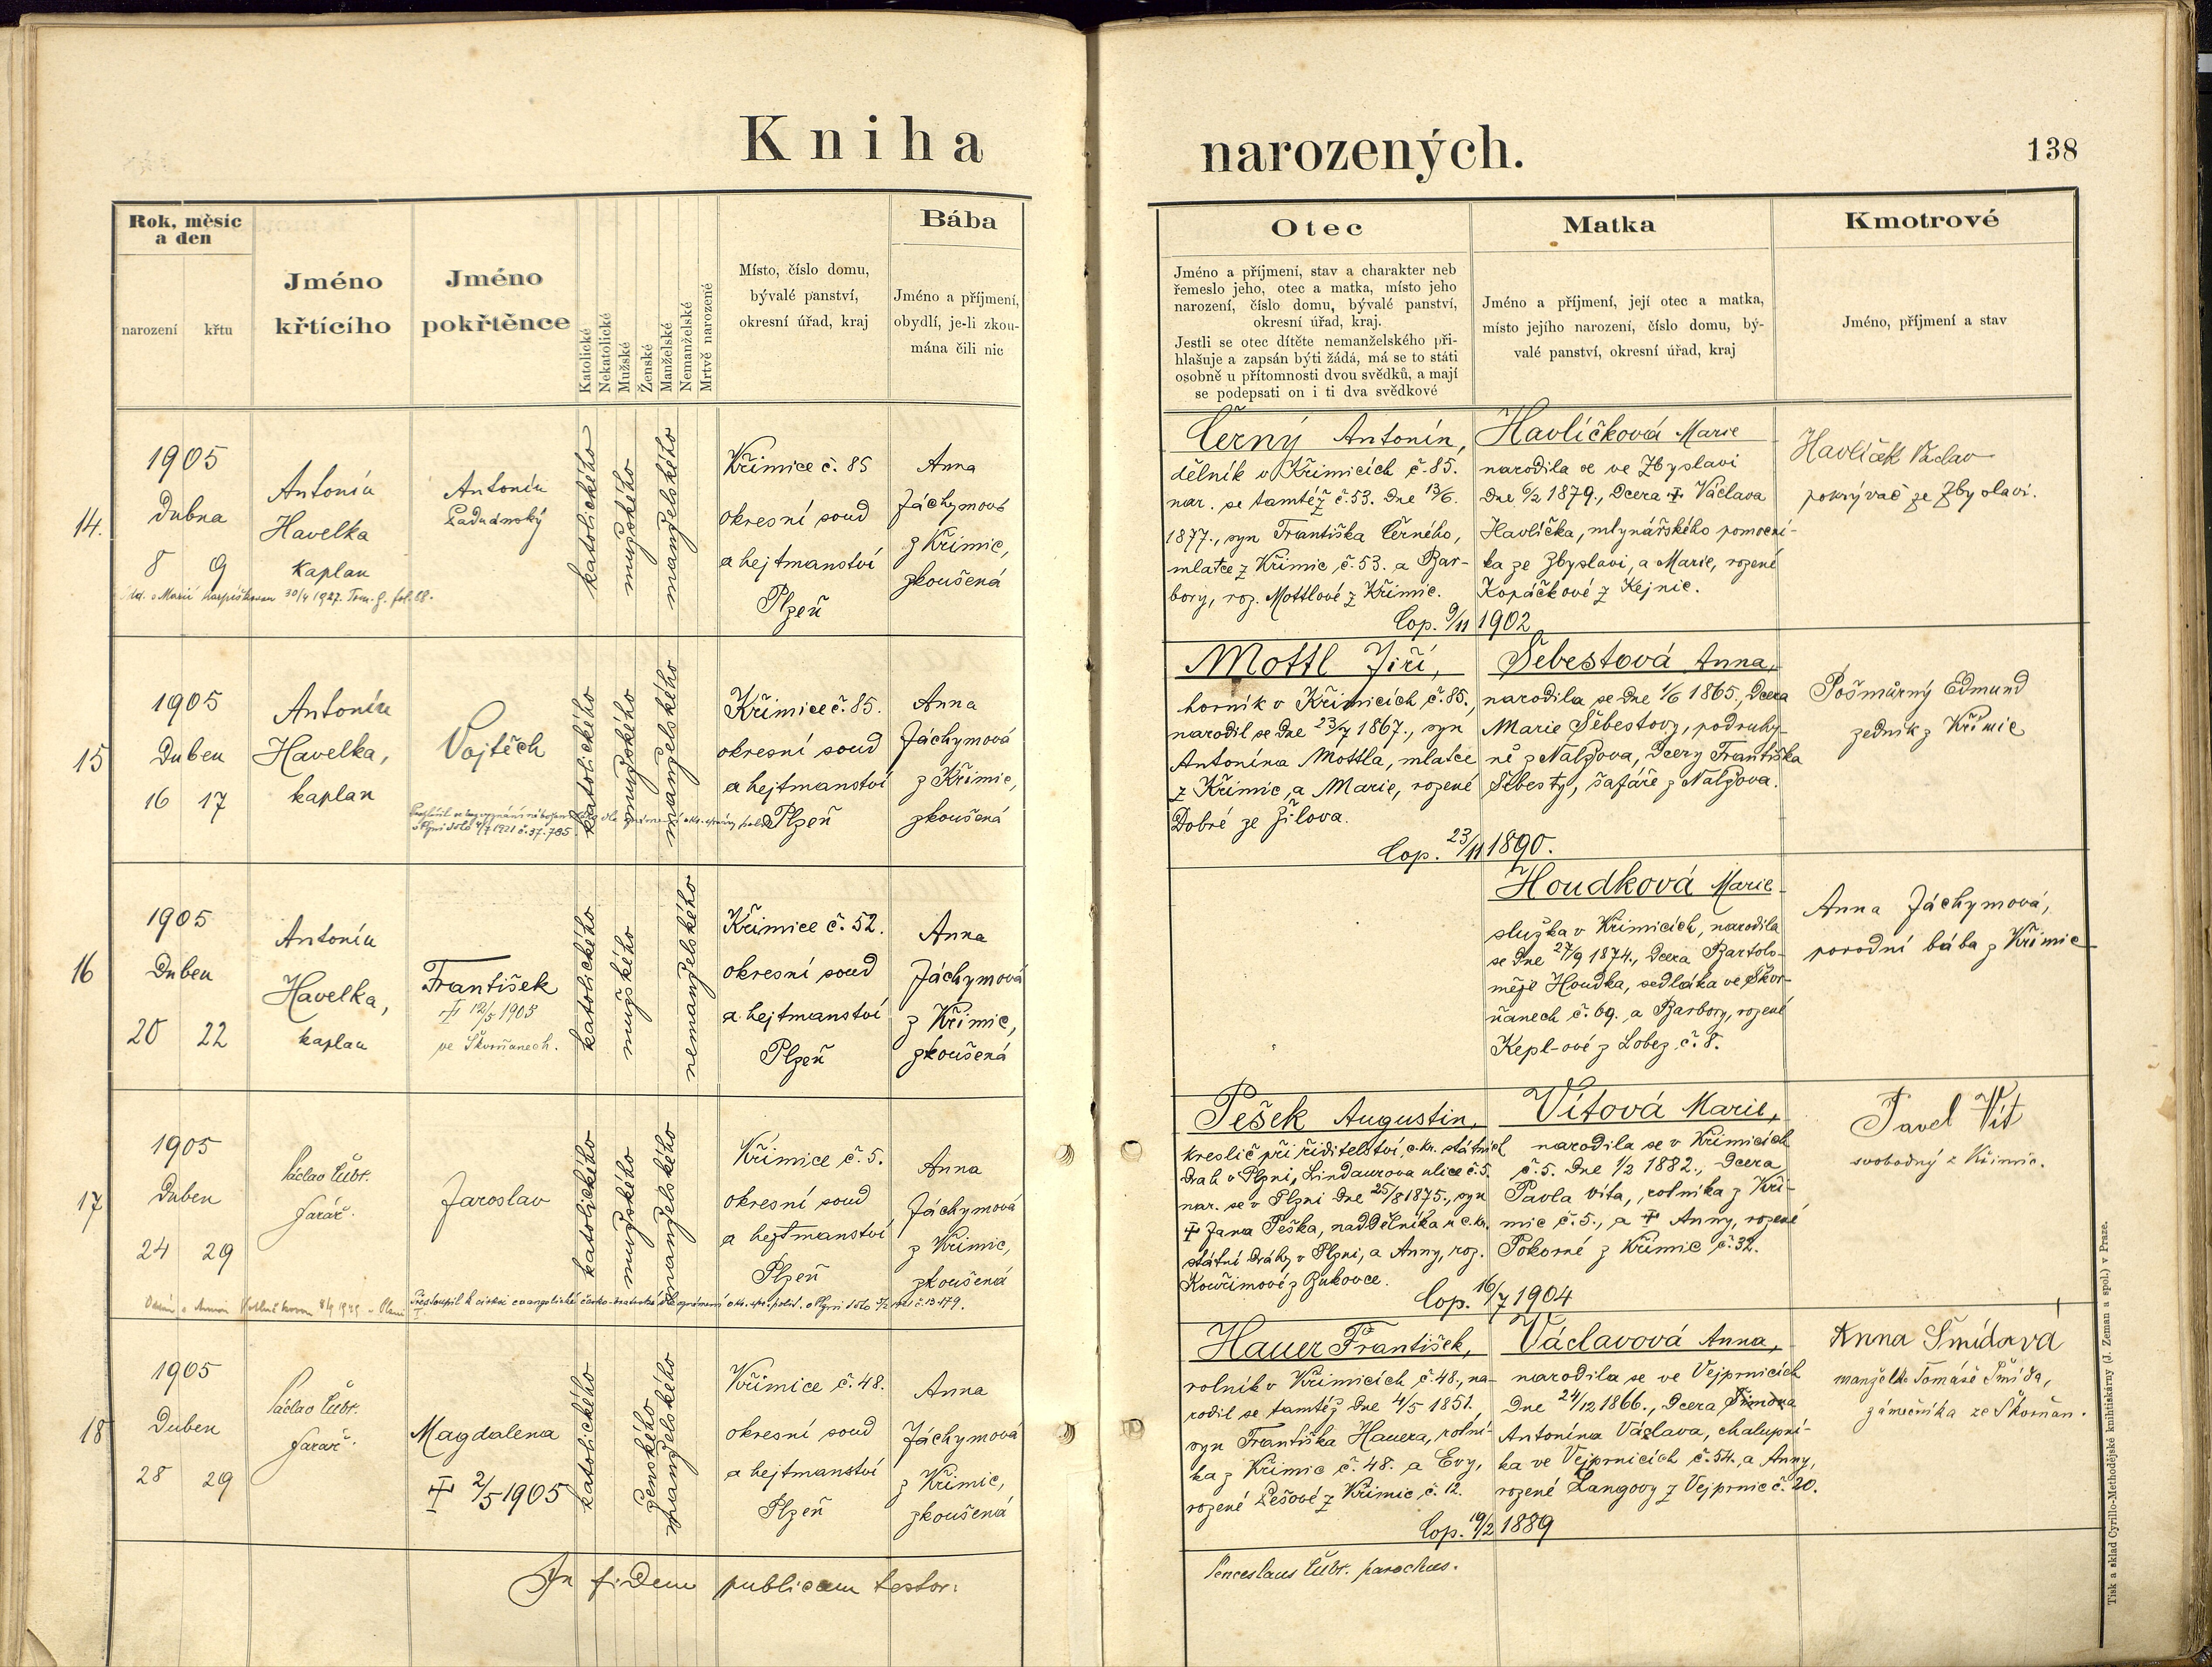 Kniha
narozených.
138
Rok, měsíc
a den
narození
křtu
Jméno
křtícího
Jméno
pokřtěnce
Katolické
Nekatolické
Mužské
Ženské
Manželské
Nemanželské
Mrtvě narozené
Místo, číslo domu,
bývalé panství,
okresní úřad, kraj
Bába
Jméno a příjmení,
obydlí, je-li zkou-
mána čili nic
Otec
Jméno a příjmení, stav a charakter neb
řemeslo jeho, otec a matka, místo jeho
narození, číslo domu, bývalé panství,
okresní úřad, kraj.
Jestli se otec dítěte nemanželského při-
hlašuje a zapsán býti žádá, má se to státi
osobně u přítomnosti dvou svědků, a mají
se podepsati on i ti dva svědkové
Matka
Jméno a příjmení, její otec a matka,
místo jejího narození, číslo domu, bý-
valé panství, okresní úřad, kraj
Kmotrové
Jméno, příjmení a stav
14.
1905
Dubna
8 9
Antonín
Havelka
kaplan
Antonín
Ladnánský
katolického
mužského
manželského
Křimice č. 85
okresní soud
a hejtmanství
Plzeň
Anna
Jáchymová
z Křimic,
zkoušená
Marií 30/4 1927. fol. 88.
Černý Antonín,
dělník v Křimicích č. 85.
nar. se tamtéž č. 53. dne 13/6.
1877., syn Františka Černého,
mlatce z Křimic č. 53. a Bar-
bory, roz. Mottlové z Křimic.
Havlíčková Marie
narodila se ve Zbyslavi
dne 6/2 1879., dcera † Václava
Havlíčka, mlynářského pomocní-
ka ze Zbyslavi, a Marie, rozené
Kopáčkové z Kejnic.
Cop. 9/11 1902
Havlíček Václav
pokrývač ze Zbyslavi.
15
1905
Duben
16 17
Antonín
Havelka,
kaplan
Vojtěch
1921 č. 37.785
katolického
mužského
manželského
Křimice č. 85.
okresní soud
a hejtmanství
Plzeň
Anna
Jáchymová
z Křimic,
zkoušená
Mottl Jiří,
horník v Křimicích č. 85.,
narodil se dne 23/7 1867., syn
Antonína Mottla, mlatce
z Křimic, a Marie, rozené
Dobré ze Žilova.
Šebestová Anna,
narodila se dne 1/6 1865., dcera
Marie Šebestovy, podruhy-
ně z Nalžova, dcery Františka
Šebesty, šafáře z Nalžova.
Cop. 23/11 1890.
Pošmůrný Edmund
zedník z Křimic
16
1905
Duben
20 22
Antonín
Havelka,
kaplan
František
† 12/5 1905
ve Škvrňanech.
katolického
mužského
nemanželského
Křimice č. 52.
okresní soud
a hejtmanství
Plzeň
Anna
Jáchymová
z Křimic,
zkoušená
Houdková Marie
služka v Křimicích, narodila
se dne 27/9 1874., dcera Bartolo-
měje Houdka, sedláka ve Škvr-
ňanech č. 69. a Barbory, rozené
Kepl-ové z Lobez č. 8.
Anna Jáchymová,
porodní bába z Křimic
17
1905
Duben
24 29
Václav Čubr.
farář.
Jaroslav
katolického
mužského
manželského
Křimice č. 5.
okresní soud
a hejtmanství
Plzeň
Anna
Jáchymová
z Křimic,
zkoušená
Přestoupil k církvi evangelické česko-bratrské dle oznámení okr. spr. polit. v Plzni č. 13179.
Pešek Augustin,
kreslič při ředitelství, c. kr. státních
drah v Plzni, Lindaurova ulice č. 5.
nar. se v Plzni dne 25/8 1875., syn
† Jana Peška, naddělníka u c. kr.
státní dráhy v Plzni, a Anny, roz.
Kouřimové z Bukovce.
Vítová Marie,
narodila se v Křimicích
č. 5. dne 1/2 1882., dcera
Pavla Víta, rolníka z Kři-
mic č. 5., a † Anny, rozené
Pokorné z Křimic č. 32.
Cop. 16/7 1904
Pavel Vít
svobodný z Křimic.
18
1905
Duben
28 29
Václav Čubr.
farář.
Magdalena
† 2/5 1905
katolického
ženského
manželského
Křimice č. 48.
okresní soud
a hejtmanství
Plzeň
Anna
Jáchymová
z Křimic,
zkoušená
Hauer František,
rolník v Křimicích č. 48., na-
rodil se tamtéž dne 4/5 1851.
syn Františka Hauera, rolní-
ka z Křimic č. 48. a Evy,
rozené Lešové z Křimic č. 12.
Václavová Anna,
narodila se ve Vejprnicích
dne 24/12 1866., dcera
Antonína Václava, chalupní-
ka ve Vejprnicích č. 54., a Anny,
rozené Langovy z Vejprnic č. 20.
Cop. 19/2 1889
Anna Šmídová
manželka Tomáše Šmída,
zámečníka ze Škvrňan.
In fidem publicam testor:
Venceslaus Čubr. parochus.
Tisk a sklad Cyrillo-Methodějské knihtiskárny (J. Zeman a spol.) v Praze.